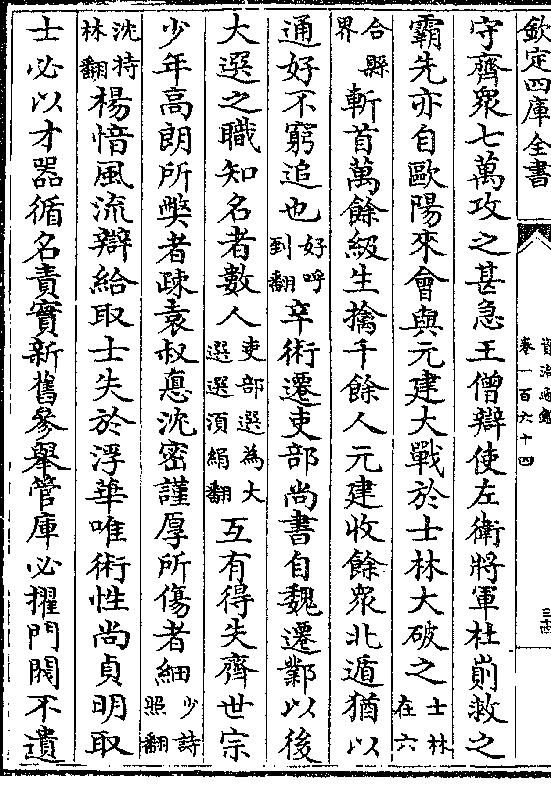 欽定四庫全書
資治通鑑
卷一百六十四
三十四
守齊衆七萬攻之甚急王僧辯使左衛將軍杜崱救之
霸先亦自歐陽來會與元建大戰於士林大破之士林在六
合縣界斬首萬餘級生擒千餘人元建收餘衆北遁猶以
通好不窮追也好呼到翻辛術遷吏部尚書自魏遷鄴以後
大選之職知名者數人吏部選為大選選須絹翻互有得失齊世宗
少年高朗所弊者疎袁叔德沈密謹厚所傷者細少詩照翻
沈持林翻楊愔風流辯給取士失於浮華唯術性尚貞明取
士必以才器循名責實新舊參舉管庫必擢門閥不遺